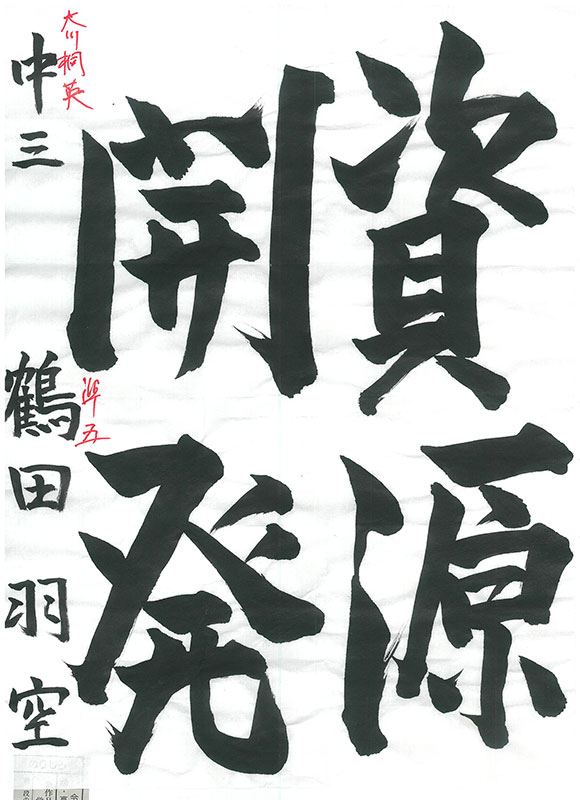 資源
開発
中三 鶴田羽空
大川桐英
準五